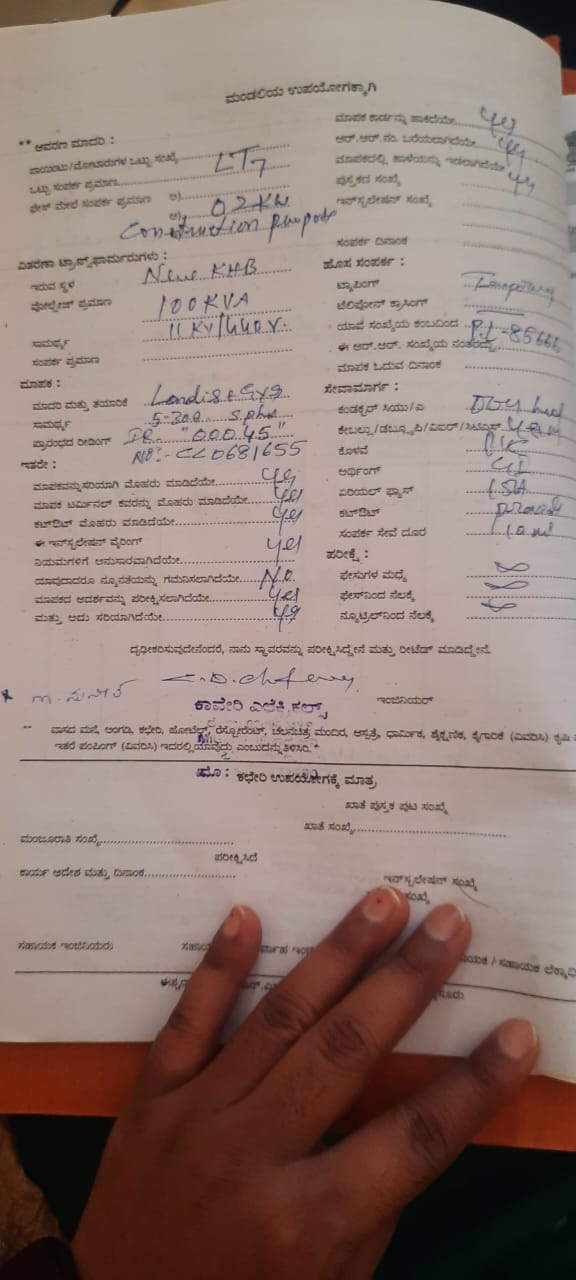 ಮಂಡಲಿಯ ಉಪಯೋಗಕ್ಕಾಗಿ
** ಆವರಣ ಮಾದರಿ :
ಪಾಯಿಂಟು/ಮೋಟಾರುಗಳ ಒಟ್ಟು ಸಂಖ್ಯೆ
ಒಟ್ಟು ಸಂಪರ್ಕ ಪ್ರಮಾಣ LT7
ಫೇಸ್ ಮೇಲೆ ಸಂಪರ್ಕ ಪ್ರಮಾಣ ಅ)
ಆ) 02 KW
Construction
ವಿತರಣಾ ಟ್ರಾನ್ಸ್‌ಫಾರ್ಮರುಗಳು :
ಇರುವ ಸ್ಥಳ New KHB
ವೋಲ್ಟೇಜ್ ಪ್ರಮಾಣ 100 KVA
ಸಾಮರ್ಥ್ಯ 11 KV/440 V.
ಸಂಪರ್ಕ ಪ್ರಮಾಣ
ಮಾಪಕ :
ಮಾದರಿ ಮತ್ತು ತಯಾರಿಕೆ Landis & Gyg
ಸಾಮರ್ಥ್ಯ 5-30a
ಪ್ರಾರಂಭದ ರೀಡಿಂಗ್ IR "00045"
ಇತರೇ : CL0681655
ಮಾಪಕವನ್ನು ಸರಿಯಾಗಿ ಮೊಹರು ಮಾಡಿದೆಯೇ yes
ಮಾಪಕ ಟರ್ಮಿನಲ್ ಕವರನ್ನು ಮೊಹರು ಮಾಡಿದೆಯೇ yes
ಕಟ್‌ಔಟ್ ಮೊಹರು ಮಾಡಿದೆಯೇ yes
ಈ ಇನ್‌ಸ್ಟಲೇಷನ್ ವೈರಿಂಗ್
ನಿಯಮಗಳಿಗೆ ಅನುಸಾರವಾಗಿದೆಯೇ yes
ಯಾವುದಾದರೂ ನ್ಯೂನತೆಯನ್ನು ಗಮನಿಸಲಾಗಿದೆಯೇ No
ಮಾಪಕದ ಆದರ್ಶವನ್ನು ಪರೀಕ್ಷಿಸಲಾಗಿದೆಯೇ yes
ಮತ್ತು ಅದು ಸರಿಯಾಗಿದೆಯೇ yes
ಮಾಪಕ ಕಾರ್ಡನ್ನು ಹಾಕಿದೆಯೇ yes
ಆರ್.ಆರ್.ನಂ. ಬರೆಯಲಾಗಿದೆಯೇ yes
ಮಾಪಕದಲ್ಲಿ ಹಾಳೆಯನ್ನು ಇಡಲಾಗಿದೆಯೇ yes
ಪುಸ್ತಕದ ಸಂಖ್ಯೆ
ಇನ್‌ಸ್ಟಲೇಷನ್ ಸಂಖ್ಯೆ
ಸಂಪರ್ಕ ದಿನಾಂಕ
ಹೊಸ ಸಂಪರ್ಕ :
ಟ್ಯಾಪಿಂಗ್
ಟೆಲಿಫೋನ್ ಕ್ರಾಸಿಂಗ್
ಯಾವ ಸಂಖ್ಯೆಯ ಕಂಬದಿಂದ
ಈ ಆರ್.ಆರ್. ಸಂಖ್ಯೆಯ ನಂತರದ್ದು
ಮಾಪಕ ಓದುವ ದಿನಾಂಕ
ಸೇವಾಮಾರ್ಗ :
ಕಂಡಕ್ಟರ್ ಸಿಯು/ಎ
ಕೊಳವೆ
ಅರ್ಥಿಂಗ್ GI
ಏರಿಯಲ್ ಫ್ಯೂಸ್ 15A
ಕಟ್‌ಔಟ್
ಸಂಪರ್ಕ ಸೇವೆ ದೂರ
ಪರೀಕ್ಷೆ :
ಫೇಸುಗಳ ಮಧ್ಯೆ
ಫೇಸ್‌ನಿಂದ ನೆಲಕ್ಕೆ
ನ್ಯೂಟ್ರಲ್‌ನಿಂದ ನೆಲಕ್ಕೆ
ದೃಢೀಕರಿಸುವುದೇನೆಂದರೆ, ನಾನು ಸ್ಥಾವರವನ್ನು ಪರೀಕ್ಷಿಸಿದ್ದೇನೆ ಮತ್ತು ರೀಟೆಡ್ ಮಾಡಿದ್ದೇನೆ.
ಕಾವೇರಿ ಎಲೆಕ್ಟ್ರಿಕಲ್ಸ್ ಇಂಜಿನಿಯರ್
** ವಾಸದ ಮನೆ, ಅಂಗಡಿ, ಕಛೇರಿ, ಹೋಟೆಲ್ಸ್, ರೆಸ್ಟೋರೆಂಟ್, ಚಲನಚಿತ್ರ ಮಂದಿರ, ಆಸ್ಪತ್ರೆ, ಧಾರ್ಮಿಕ, ಶೈಕ್ಷಣಿಕ, ಕೈಗಾರಿಕೆ (ವಿವರಿಸಿ) ಕೃಷಿ
ಇತರೆ ಪಂಪಿಂಗ್ (ವಿವರಿಸಿ) ಇದರಲ್ಲಿ ಯಾವುದ್ದು ಎಂಬುದನ್ನು ತಿಳಿಸಿರಿ.*
ಮೊ : ಕಛೇರಿ ಉಪಯೋಗಕ್ಕೆ ಮಾತ್ರ
ಖಾತೆ ಪುಸ್ತಕ ಪುಟ ಸಂಖ್ಯೆ
ಖಾತೆ ಸಂಖ್ಯೆ
ಮಂಜೂರಾತಿ ಸಂಖ್ಯೆ
ಪರೀಕ್ಷಿಸಿದೆ
ಕಾರ್ಯ ಆದೇಶ ಮತ್ತು ದಿನಾಂಕ
ಇನ್‌ಸ್ಟಲೇಷನ್ ಸಂಖ್ಯೆ
ಸಂಖ್ಯೆ
ಸಹಾಯಕ ಇಂಜಿನಿಯರು